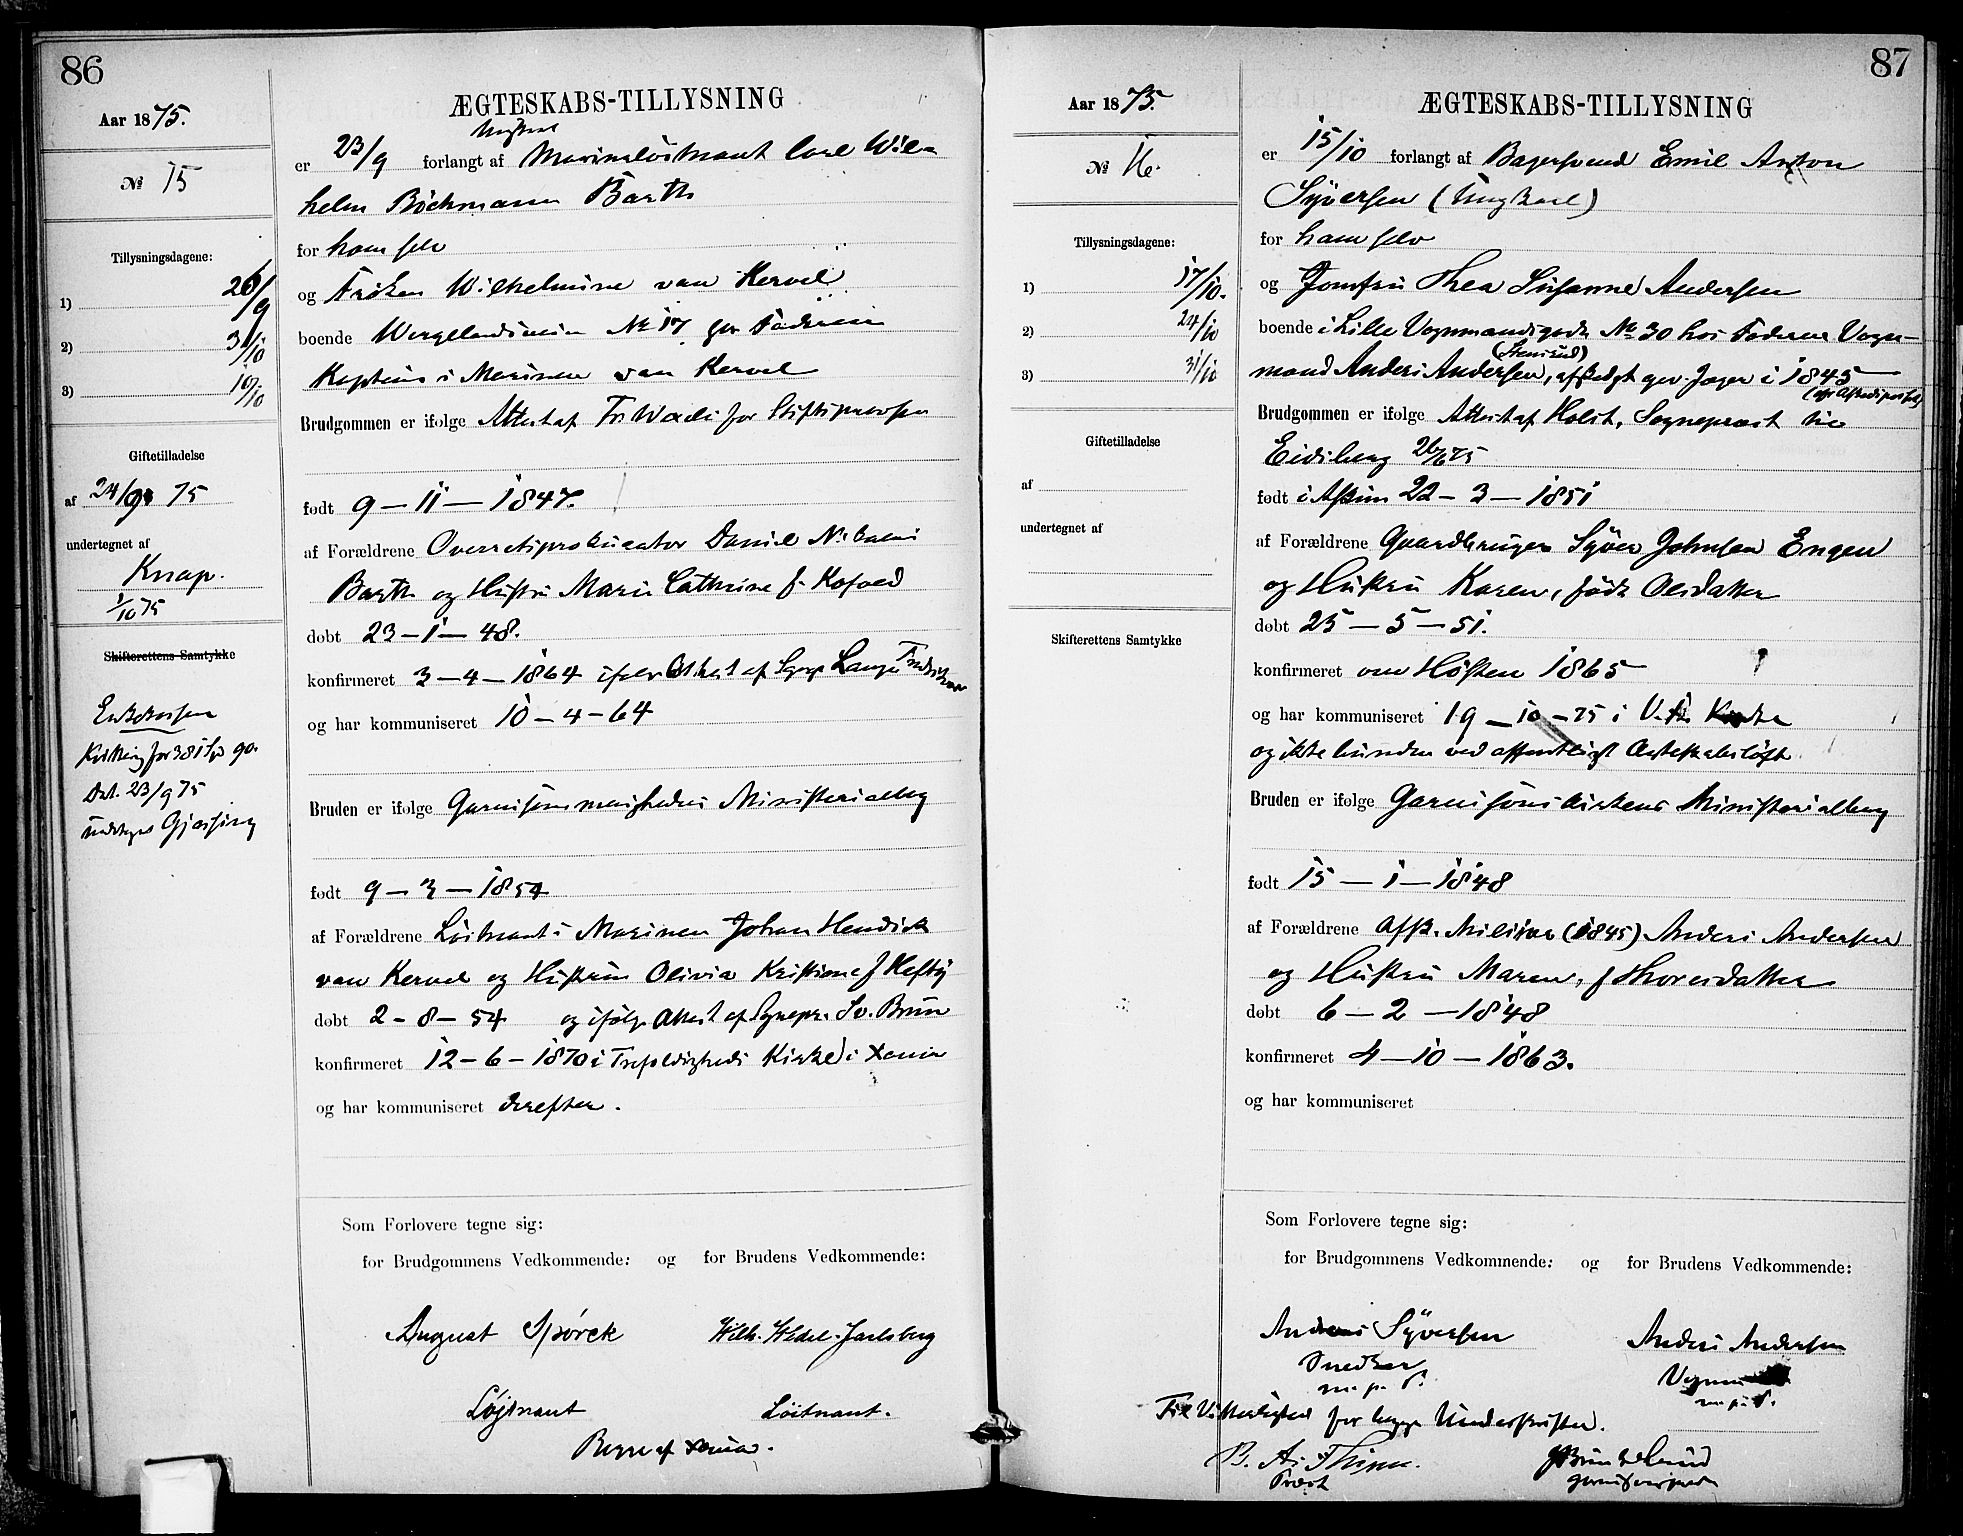 86
Aar 1875.
№ 15
Tillysningsdagene:
1) 26/9
2) 3/10
3) 10/10
Giftetilladelse
af 24/9 75
undertegnet af
Knap.
1/10 75
Skifterettens Samtykke
for 381 Sp 90.
Dat. 23/9 75
ÆGTESKABS-TILLYSNING
Ungkarl
er 23/9 forlangt af Marineløitnant Carl Wil-
helm Böckmann Barth
for ham selv
og Frøken Wilhelmine van Kervel
boende Wergelandsveien № 17 hos Faderen
Kaptein i Marinen van Kervel
Brudgommen er ifølge Attest af Fr Wexels for Stiftsprovsten
født 9 – 11 – 1847.
af Forældrene Overretsprokurator Daniel
Barth og Hustru Marie Cathrine f. Kofoed
døbt 23 – 1 – 48.
konfirmeret 3 – 4 – 1864 ifølge Attest af Sgpr Lange
og har kommuniseret 10 – 4 – 64
Bruden er ifølge Garnisonsmenighedens Ministerialbog
født 9 – 3 – 1854
af Forældrene Løitnant i Marinen Johan Hendrik
van Kervel og Hustru Olivia Kristiane f Heftÿ
døbt 2 – 8 – 54 og ifølge Attest af Sognepr. Sv. Brun
konfirmeret 12 – 6 – 1870 i Trefoldigheds Kirke i Xania
og har kommuniseret derefter.
Som Forlovere tegne sig:
for Brudgommens Vedkommende: og for Brudens Vedkommende:
August Spörck Wilh. Wedel-Jarlsberg
Løjtnant Löitnant.
Begge af Xania.
87
Aar 1875.
№ 16.
Tillysningsdagene:
1) 17/10.
2) 24/10
3) 31/10
Giftetilladelse
af
undertegnet af
Skifterettens Samtykke
ÆGTESKABS-TILLYSNING
er 15/10 forlangt af Bagersvend Emil Anton
Syversen (Ungkarl)
for ham selv
og Jomfru Thea Susanne Andersen
boende i Lille Vognmandsgade № 30 hos Faderen Vogn-
(Stensrud)
mand Anders Andersen, afskediget gev. Jæger i 1845
Brudgommen er ifølge Attest af Holst, Sognepræst til
Eidsberg 26/6 75
født i Askim 22 – 3 – 1851
af Forældrene Gaardbruger Syver Johnsen Engen
og Hustru Karen, født Olsdatter
døbt 25 – 5 – 51.
konfirmeret om Høsten 1865
og har kommuniseret 19 – 10 – 75 i V. A. Kirke
og ikke bunden ved offentligt Ægteskabsløfte
Bruden er ifølge Garnisonskirkens Ministerialbog
født 15 – 1 – 1848
af Forældrene Afsk. Militær (1845) Anders Andersen
og Hustru Maren, f Thoresdatter
døbt 6 – 2 – 1848
konfirmeret 4 – 10 – 1863.
og har kommuniseret
Som Forlovere tegne sig:
for Brudgommens Vedkommende: og for Brudens Vedkommende:
Anders Syversen Anders Andersen
Snedker
m. p. P. m. p. P.
Til Vitterlighed for begge Underskrifter.
Præst